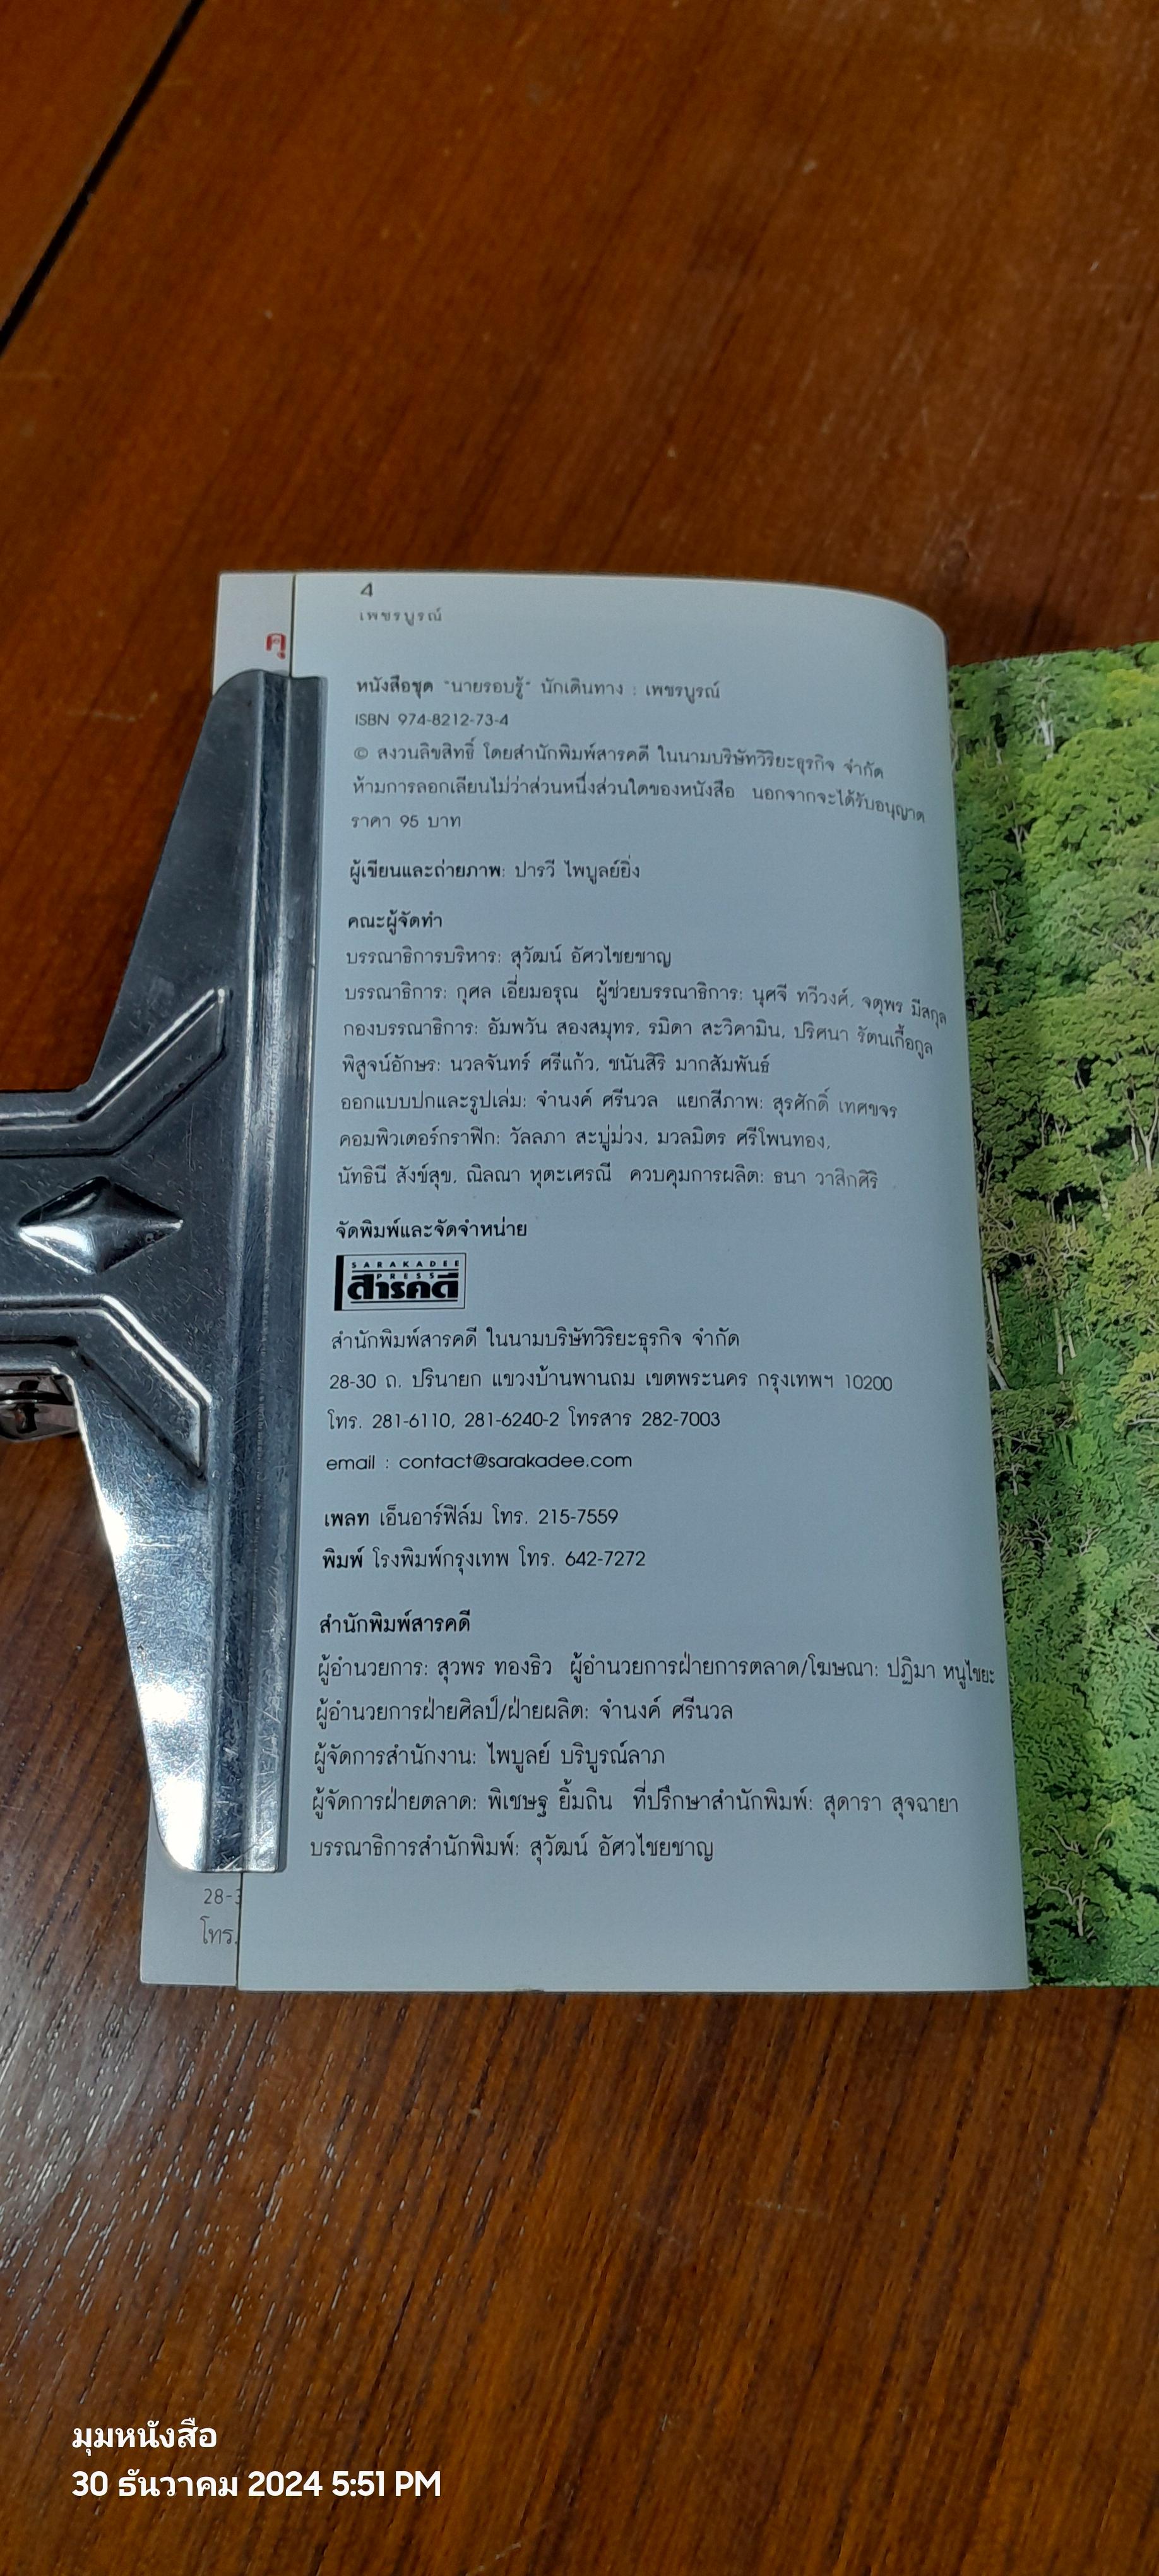 4
เพชรบูรณ์
คุ
หนังสือชุด "นายรอบรู้" นักเดินทาง : เพชรบูรณ์
ISBN 974-8212-73-4
© สงวนลิขสิทธิ์ โดยสำนักพิมพ์สารคดี ในนามบริษัทวิริยะธุรกิจ จำกัด
ห้ามการลอกเลียนไม่ว่าส่วนหนึ่งส่วนใดของหนังสือ นอกจากจะได้รับอนุญาต
ราคา 95 บาท
ผู้เขียนและถ่ายภาพ: ปารวี ไพบูลย์ยิ่ง
คณะผู้จัดทำ
บรรณาธิการบริหาร: สุวัฒน์ อัศวไชยชาญ
บรรณาธิการ: กุศล เอี่ยมอรุณ ผู้ช่วยบรรณาธิการ: นุศจี ทวีวงศ์, จตุพร มีสกุล
กองบรรณาธิการ: อัมพวัน สองสมุทร, รมิดา สะวิคามิน, ปริศนา รัตนเกื้อกูล
พิสูจน์อักษร: นวลจันทร์ ศรีแก้ว, ชนันสิริ มากสัมพันธ์
ออกแบบปกและรูปเล่ม: จำนงค์ ศรีนวล แยกสีภาพ: สุรศักดิ์ เทศขจร
คอมพิวเตอร์กราฟิก: วัลลภา สะบู่ม่วง, มวลมิตร ศรีโพนทอง,
นัทธินี สังข์สุข, ณิลณา หุตะเศรณี ควบคุมการผลิต: ธนา วาสิกศิริ
จัดพิมพ์และจัดจำหน่าย
SARAKADEE
PRESS
สารคดี
สำนักพิมพ์สารคดี ในนามบริษัทวิริยะธุรกิจ จำกัด
28-30 ถ. ปรินายก แขวงบ้านพานถม เขตพระนคร กรุงเทพฯ 10200
โทร. 281-6110, 281-6240-2 โทรสาร 282-7003
email : contact@sarakadee.com
เพลท เอ็นอาร์ฟิล์ม โทร. 215-7559
พิมพ์ โรงพิมพ์กรุงเทพ โทร. 642-7272
สำนักพิมพ์สารคดี
ผู้อำนวยการ: สุวพร ทองธิว ผู้อำนวยการฝ่ายการตลาด/โฆษณา: ปฏิมา หนูไชยะ
ผู้อำนวยการฝ่ายศิลป์/ฝ่ายผลิต: จำนงค์ ศรีนวล
ผู้จัดการสำนักงาน: ไพบูลย์ บริบูรณ์ลาภ
ผู้จัดการฝ่ายตลาด: พิเชษฐ ยิ้มถิน ที่ปรึกษาสำนักพิมพ์: สุดารา สุจฉายา
บรรณาธิการสำนักพิมพ์: สุวัฒน์ อัศวไชยชาญ
28-3
โทร.
มุมหนังสือ
30 ธันวาคม 2024 5:51 PM